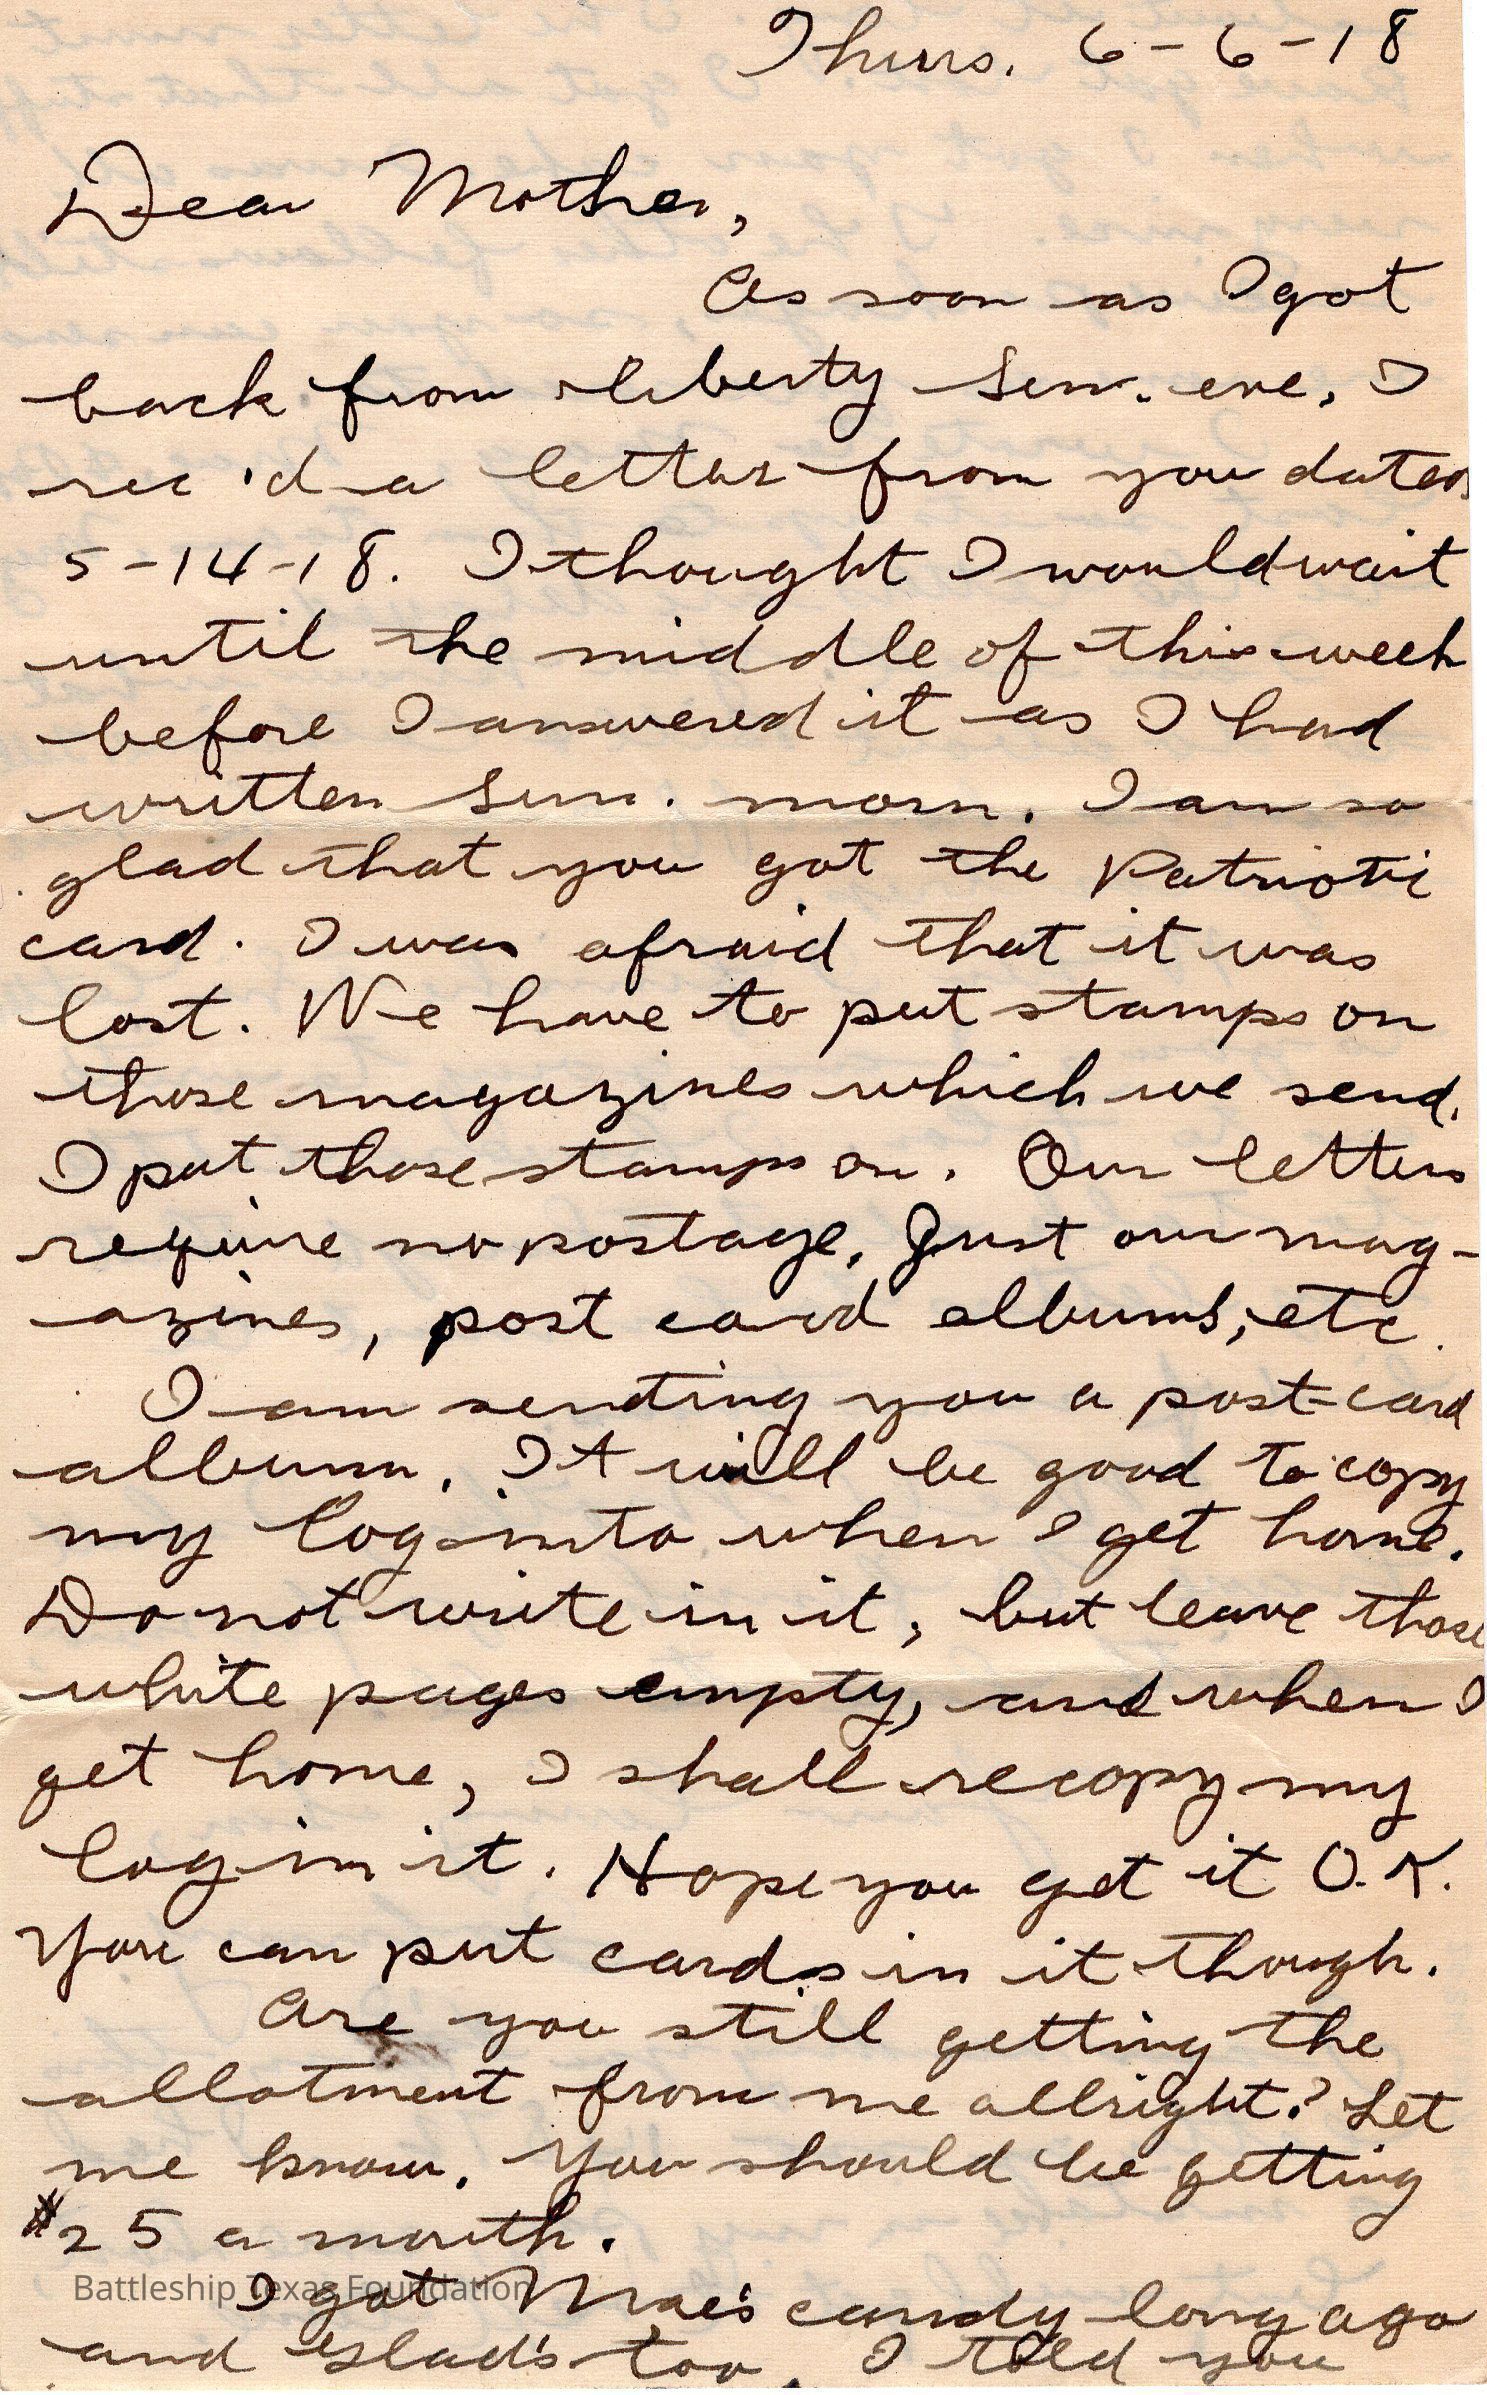 Thurs. 6-6-18
Dear Mother,
As soon as I got
back from liberty Sun. eve, I
rec'd a letter from you dated
5-14-18. I thought I would wait
until the middle of this week
before I answered it as I had
written Sun. morn. I am so
glad that you got the Patriotic
card. I was afraid that it was
lost. We have to put stamps on
those magazines which we send.
I put those stamps on. Our letters
require no postage, Just our mag-
azines, post card albums, etc.
I am sending you a post-card
album. It will be good to copy
my log into when I get home.
Do not write in it, but leave those
white pages empty, and when I
get home, I shall recopy my
log in it. Hope you get it O.K.
You can put cards in it though.
Are you still getting the
allotment from me allright? Let
me know. You should be getting
$25 a month.
Battleship Texas Foundation
I got Mae's candy long ago
and Glad's too. I told you